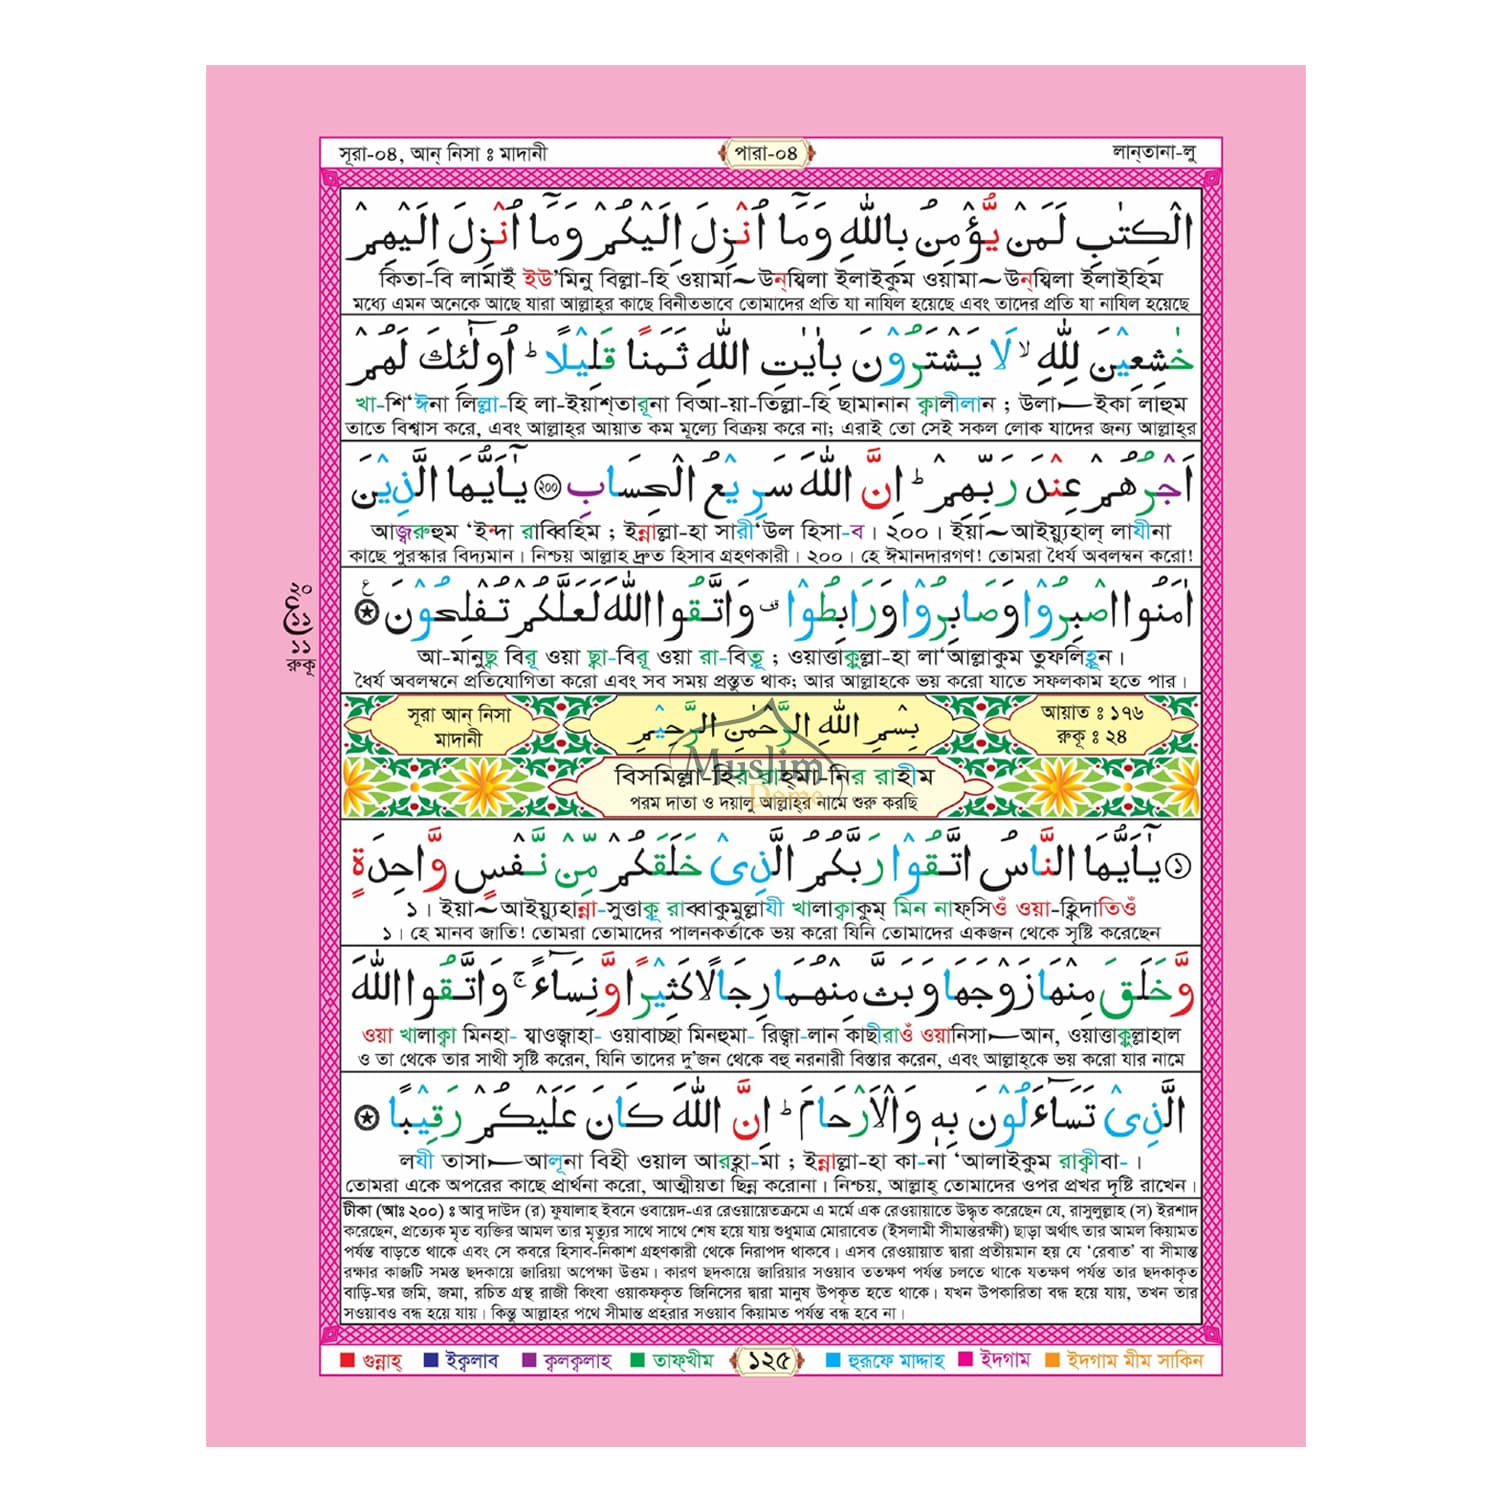 সূরা-০৪, আন্ নিসা ঃ মাদানী
পারা-০৪
লান্তানা-লু
الْكِتٰبِ لَمَنْ يُّؤْمِنُ بِاللّٰهِ وَمَآ اُنْزِلَ اِلَيْكُمْ وَمَآ اُنْزِلَ اِلَيْهِمْ
কিতা-বি লামাইঁ ইউ’মিনু বিল্লা-হি ওয়ামা~উন্যিলা ইলাইকুম ওয়ামা~উন্যিলা ইলাইহিম
মধ্যে এমন অনেকে আছে যারা আল্লাহ্‌র কাছে বিনীতভাবে তোমাদের প্রতি যা নাযিল হয়েছে এবং তাদের প্রতি যা নাযিল হয়েছে
خٰشِعِيْنَ لِلّٰهِ ۙ لَا يَشْتَرُوْنَ بِاٰيٰتِ اللّٰهِ ثَمَنًا قَلِيْلًا ؕ اُولٰٓئِكَ لَهُمْ
খা-শি‘ঈনা লিল্লা-হি লা-ইয়াশ্‌তারূনা বিআ-য়া-তিল্লা-হি ছামানান ক্বালীলান ; উলা—ইকা লাহুম
তাতে বিশ্বাস করে, এবং আল্লাহ্‌র আয়াত কম মূল্যে বিক্রয় করে না; এরাই তো সেই সকল লোক যাদের জন্য আল্লাহ্‌র
اَجْرُهُمْ عِنْدَ رَبِّهِمْ ؕ اِنَّ اللّٰهَ سَرِيْعُ الْحِسَابِ ২০০ يٰٓاَيُّهَا الَّذِيْنَ
আজ্বরুহুম ‘ইন্দা রাব্বিহিম ; ইন্নাল্লা-হা সারী‘উল হিসা-ব। ২০০। ইয়া~আইয়্যুহাল্ লাযীনা
কাছে পুরস্কার বিদ্যমান। নিশ্চয় আল্লাহ দ্রুত হিসাব গ্রহণকারী। ২০০। হে ঈমানদারগণ! তোমরা ধৈর্য অবলম্বন করো!
اٰمَنُوا اصْبِرُوْا وَصَابِرُوْا وَرَابِطُوْا ۫ وَاتَّقُوا اللّٰهَ لَعَلَّكُمْ تُفْلِحُوْنَ ع
২০
ع
১১
১১
রুকূ
আ-মানুছ্ বিরূ ওয়া ছ্বা-বিরূ ওয়া রা-বিত্বূ ; ওয়াত্তাক্বুল্লা-হা লা‘আল্লাকুম তুফলিহূন।
ধৈর্য অবলম্বনে প্রতিযোগিতা করো এবং সব সময় প্রস্তুত থাক; আর আল্লাহকে ভয় করো যাতে সফলকাম হতে পার।
সূরা আন্ নিসা
মাদানী
بِسْمِ اللّٰهِ الرَّحْمٰنِ الرَّحِيْمِ
আয়াত ঃ ১৭৬
রুকূ ঃ ২৪
Muslim
Dome
বিসমিল্লা-হির রাহ্‌মা-নির রাহীম
পরম দাতা ও দয়ালু আল্লাহ্‌র নামে শুরু করছি
১ يٰٓاَيُّهَا النَّاسُ اتَّقُوْا رَبَّكُمُ الَّذِىْ خَلَقَكُمْ مِّنْ نَّفْسٍ وَّاحِدَةٍ
১। ইয়া~আইয়্যুহান্না-সুত্তাক্বূ রাব্বাকুমুল্লাযী খালাক্বাকুম্ মিন নাফ্সিওঁ ওয়া-হিদাতিওঁ
১। হে মানব জাতি! তোমরা তোমাদের পালনকর্তাকে ভয় করো যিনি তোমাদের একজন থেকে সৃষ্টি করেছেন
وَّخَلَقَ مِنْهَا زَوْجَهَا وَبَثَّ مِنْهُمَا رِجَالًا كَثِيْرًا وَّنِسَآءً ۚ وَاتَّقُوا اللّٰهَ
ওয়া খালাক্বা মিনহা- যাওজ্বাহা- ওয়াবাচ্ছা মিনহুমা- রিজ্বা-লান কাছীরাওঁ ওয়ানিসা—আন, ওয়াত্তাক্বুল্লাহাল
ও তা থেকে তার সাথী সৃষ্টি করেন, যিনি তাদের দু’জন থেকে বহু নরনারী বিস্তার করেন, এবং আল্লাহ্‌কে ভয় করো যার নামে
الَّذِىْ تَسَآءَلُوْنَ بِهٖ وَالْاَرْحَامَ ؕ اِنَّ اللّٰهَ كَانَ عَلَيْكُمْ رَقِيْبًا
লযী তাসা—আলূনা বিহী ওয়াল আরহ্বা-মা ; ইন্নাল্লা-হা কা-না ‘আলাইকুম রাক্বীবা-।
তোমরা একে অপরের কাছে প্রার্থনা করো, আত্মীয়তা ছিন্ন করোনা। নিশ্চয়, আল্লাহ্ তোমাদের ওপর প্রখর দৃষ্টি রাখেন।
টীকা (আঃ ২০০) ঃ আবু দাউদ (র) ফুযালাহ ইবনে ওবায়েদ-এর রেওয়ায়েতক্রমে এ মর্মে এক রেওয়ায়াতে উদ্ধৃত করেছেন যে, রাসুলুল্লাহ (স) ইরশাদ
করেছেন, প্রত্যেক মৃত ব্যক্তির আমল তার মৃত্যুর সাথে সাথে শেষ হয়ে যায় শুধুমাত্র মোরাবেত (ইসলামী সীমান্তরক্ষী) ছাড়া অর্থাৎ তার আমল কিয়ামত
পর্যন্ত বাড়তে থাকে এবং সে কবরে হিসাব-নিকাশ গ্রহণকারী থেকে নিরাপদ থাকবে। এসব রেওয়ায়াত দ্বারা প্রতীয়মান হয় যে ‘রেবাত’ বা সীমান্ত
রক্ষার কাজটি সমস্ত ছদকায়ে জারিয়া অপেক্ষা উত্তম। কারণ ছদকায়ে জারিয়ার সওয়াব ততক্ষণ পর্যন্ত চলতে থাকে যতক্ষণ পর্যন্ত তার ছদকাকৃত
বাড়ি-ঘর জমি, জমা, রচিত গ্রন্থ রাজী কিংবা ওয়াকফকৃত জিনিসের দ্বারা মানুষ উপকৃত হতে থাকে। যখন উপকারিতা বন্ধ হয়ে যায়, তখন তার
সওয়াবও বন্ধ হয়ে যায়। কিন্তু আল্লাহর পথে সীমান্ত প্রহরার সওয়াব কিয়ামত পর্যন্ত বন্ধ হবে না।
গুন্নাহ্ ইক্বলাব ক্বলক্বলাহ তাফ্খীম ১২৫ হুরূফে মাদ্দাহ ইদগাম ইদগাম মীম সাকিন